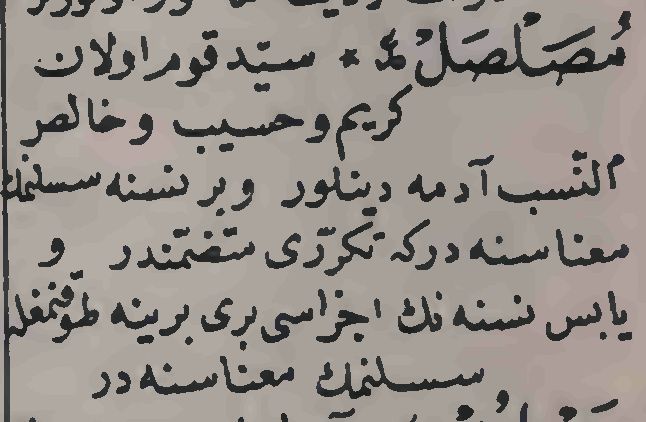 مُصَلْصَلْ ٤ * سيّد قوم اولان
كريم وحسيب وخالص
م النّسب آدمه دينلور وبر نسنه سسلنمك
معناسنه در كه تكرّرى متضمّندر و
يابس نسنه نك اجزاسى برى برينه طوقنمغله
سسلنمك معناسنه در